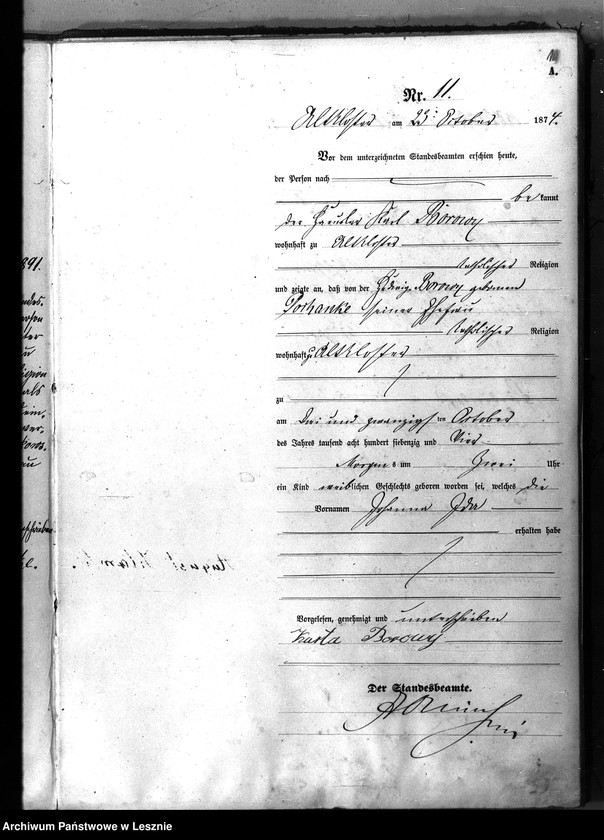 A.
Nr. 11.
Altkloster am 23. October 1874.
Vor dem unterzeichneten Standesbeamten erschien heute,
der Person nach
bekannt
der Häusler Karl Borowy
wohnhaft zu Altkloster
katholischer Religion
und zeigte an, daß von der Hedwig Borowy geborenen
seiner Ehefrau
katholischer Religion
wohnhaft zu Altkloster
zu
am drei und zwanzigsten October
des Jahres tausend acht hundert siebenzig und vier
Morgens um zwei Uhr
ein Kind weiblichen Geschlechts geboren worden sei, welches die
Vornamen Johanna Ida
erhalten habe
Vorgelesen, genehmigt und unterschrieben
Borowy
Der Standesbeamte.
891.
Archiwum Państwowe w Lesznie